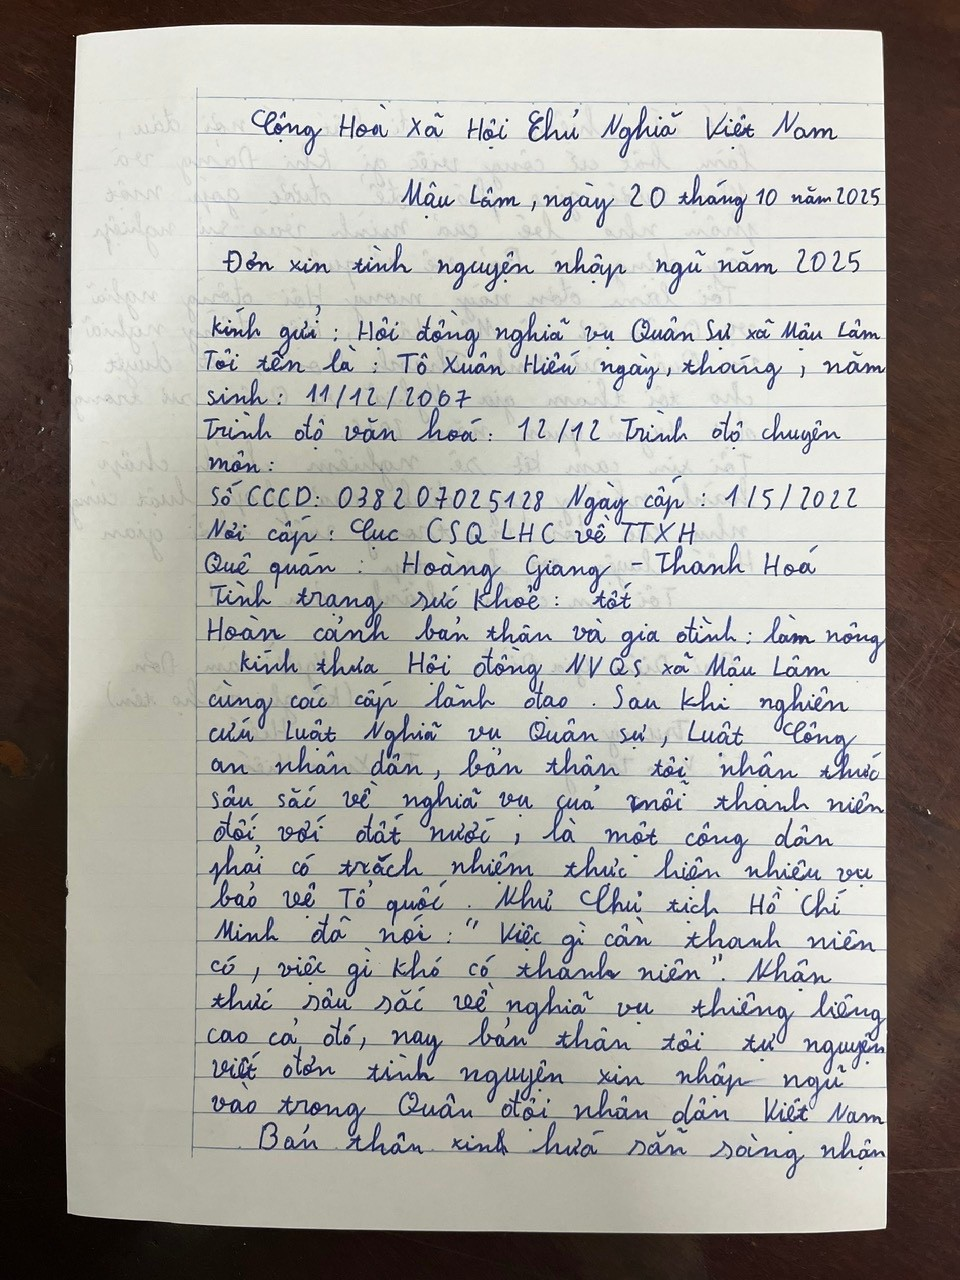 Cộng Hoà Xã Hội Chủ Nghiã Việt Nam
Mậu Lâm, ngày 20 tháng 10 năm 2025
Đơn xin tình nguyện nhập ngũ năm 2025
Kính gửi : Hội đồng nghiã vụ Quân Sự xã Mậu Lâm
Tôi tên là : Tô Xuân Hiếu ngày, tháng, năm
sinh : 11/12/2007
Trình độ văn hoá : 12/12 Trình độ chuyên
môn :
Số CCCD: 038207025128 Ngày cấp : 1/5/2022
Nơi cấp : Cục CSQLHC về TTXH
Quê quán : Hoàng Giang - Thanh Hoá
Tình trạng sức khoẻ : tốt
Hoàn cảnh bản thân và gia đình : làm nông
Kính thưa Hội đồng NVQS xã Mậu Lâm
cùng các cấp lãnh đạo. Sau khi nghiên
cứu Luật Nghiã vụ Quân sự, Luật Công
an nhân dân, bản thân tôi nhận thức
sâu sắc về nghiã vụ của mỗi thanh niên
đối với đất nước, là một công dân
phải có trách nhiệm thực hiện nhiệu vụ
bảo vệ Tổ quốc. Như Chủ tịch Hồ Chí
Minh đã nói : " Việc gì cần thanh niên
có, việc gì khó có thanh niên". Nhận
thức sâu sắc về nghiã vụ thiêng liêng
cao cả đó, nay bản thân tôi tự nguyện
viết đơn tình nguyện xin nhập ngũ
vào trong Quân đội nhân dân Việt Nam
Bản thân xinh hứa sẵn sàng nhận